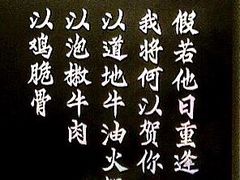 假若他日重逢
我將何以贺你
以道地牛油火
以泡椒牛肉
以鸡脆骨